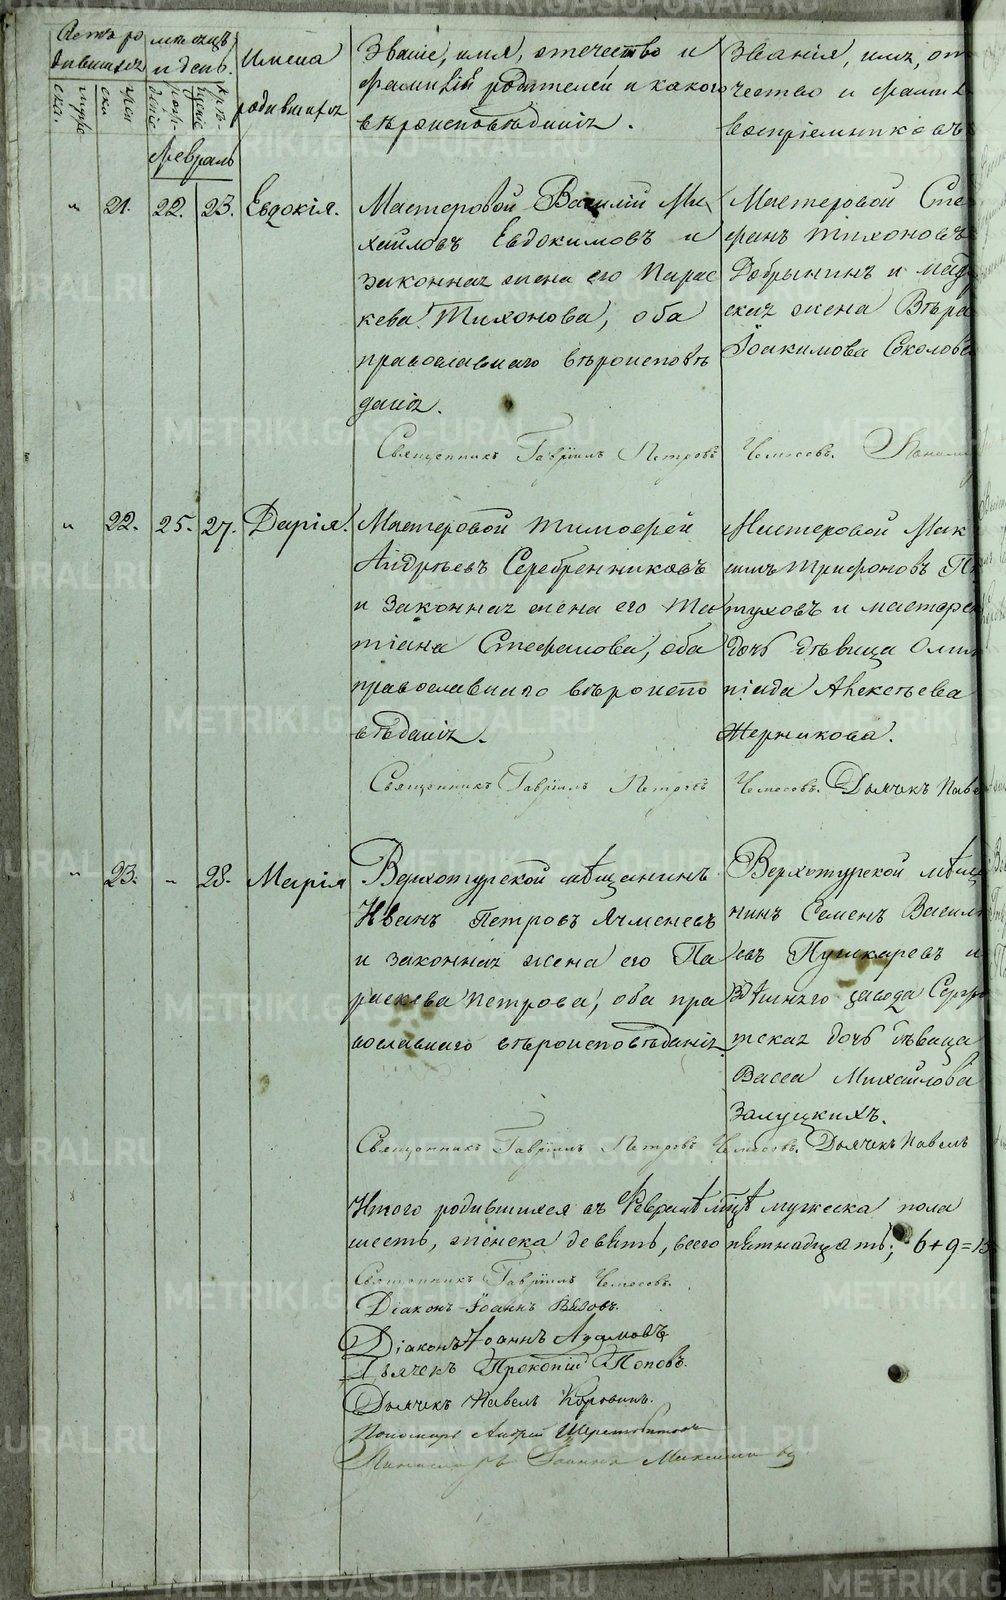 Счетъ ро
дившихся
муже
ска.
жен
ска.
мѣсяцъ
и день.
рож-
деніе
кре-
щеніе
Февраль
Имена
родившихся
Званіе, имя, отечество и
фамилій родителей и какого
вѣроисповѣданія.
Званія, имя, от
чество и фамил
воспріемниковъ
21. 22. 23. Евдокія.
Мастеровой Василій Ми
хайловъ Евдокимовъ и
законная жена его Парас
кева Тихонова, оба
православнаго вѣроисповѣ
данія.
Мастеровой Сте
фанъ Тихоновъ
Добрынинъ и маст
ская жена Вѣра
Іоакимова Соколова
Священникъ Гавріилъ Петровъ Чемесовъ.
22. 25. 27. Дарія.
Мастеровой Тимофей
Андреевъ Серебренниковъ
и законная жена его Та
тіана Стефанова, оба
православнаго вѣроиспо
вѣданія.
Мастеровой Мак
симъ Трифоновъ Пѣ
туховъ и мастерс
дочь дѣвица Олим
піада Алексѣева
Жерникова.
Священникъ Гавріилъ Петровъ Чемесовъ. Дьячекъ Паве
23. " 28. Марія
Верхотурской мѣщанинъ
Иванъ Петровъ Ячменевъ
и законная жена его Па
раскева Петрова, оба пра
вославнаго вѣроисповѣданія.
Верхотурской мѣща
нинъ Семенъ Василь
евъ Пушкаревъ и
здѣшняго завода
дочь дѣвица
Васса Михайлова
Залуцкихъ.
Священникъ Гавріилъ Петровъ Чемесовъ. Дьячекъ Павелъ
Итого родившихся въ Февралѣ мѣсяцѣ мужеска пола
шесть, женска девять, всего пятнадцать; 6+9=15
Священникъ Гавріилъ Чемесовъ.
Діаконъ Іоаннъ
Діаконъ Іоаннъ Адамовъ.
Дьячекъ Прокопій Поповъ.
Дьячекъ Павелъ Коровинъ.
Пономарь Андрей
METRIKI.GASO-URAL.RU